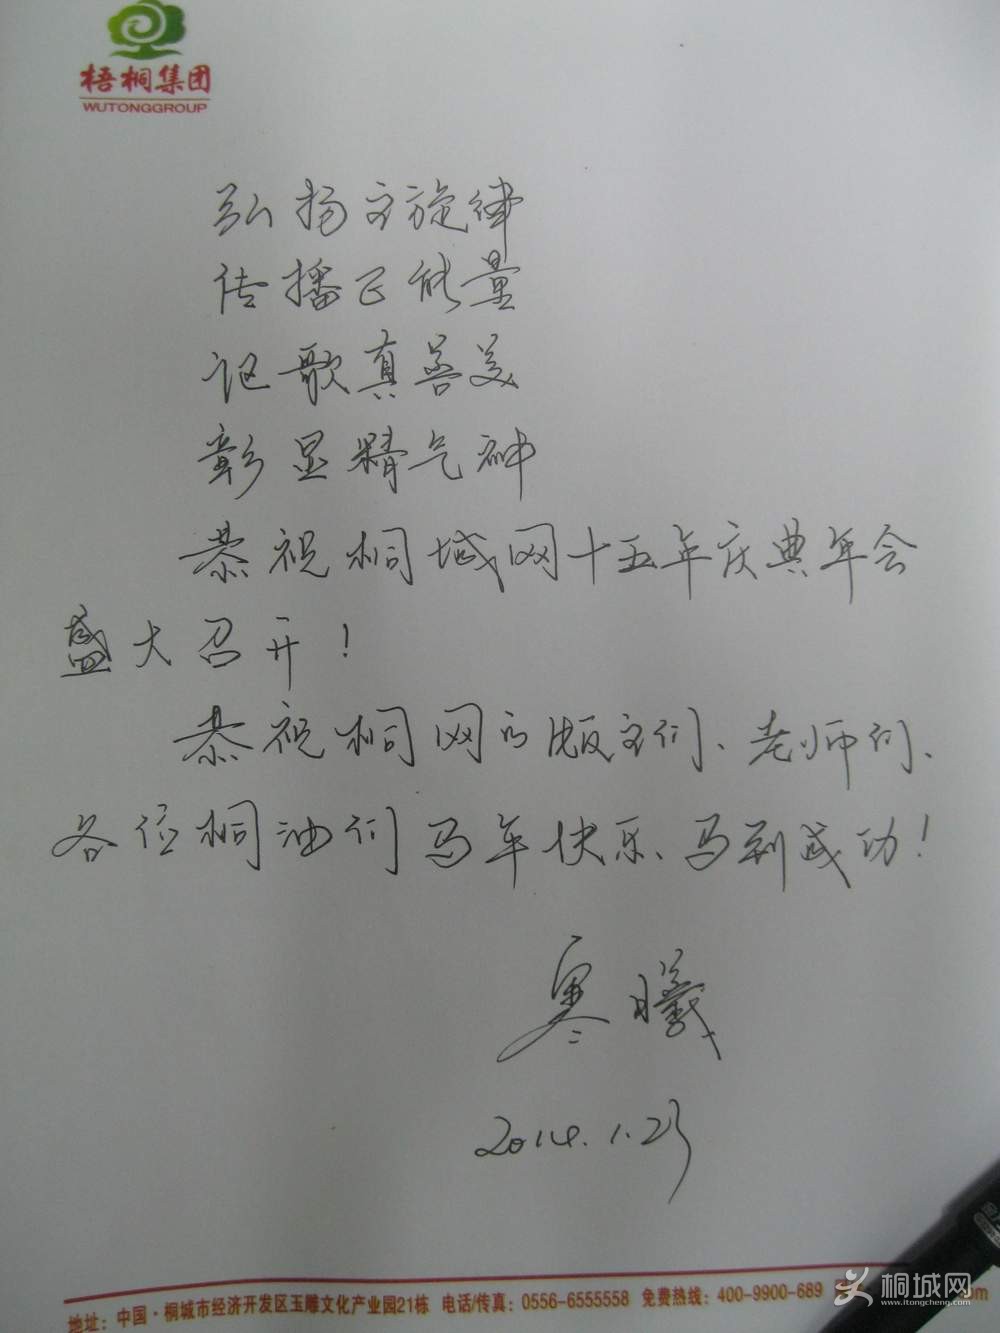 梧桐集团
WUTONGGROUP
弘扬主旋律
传播正能量
讴歌真善美
彰显精气神
恭祝桐城网十五年庆典年会
盛大召开！
恭祝桐网的版主们、老师们、
各位桐油们马年快乐、马到成功！
寒曦
2014.1.23
地址：中国·桐城市经济开发区玉雕文化产业园21栋 电话/传真：0556-6555558 免费热线：400-9900-689
桐城网
www.itongcheng.com